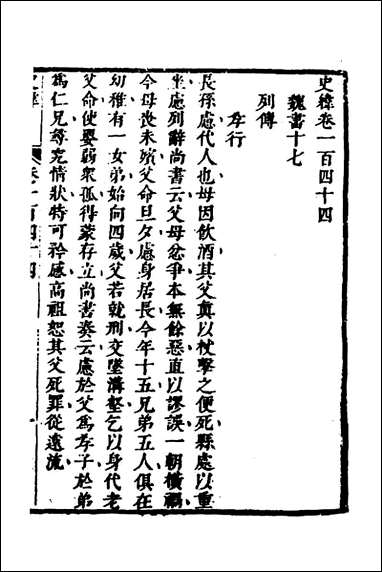 史緯卷一百四十四
魏書十七
列傳
孝行
長孫慮代人也母因飲酒其父真以杖擊之便死縣處以重
坐慮列辭尚書云父母忿爭本無餘惡直以謬誤一朝橫禍
今母喪未殯父命旦夕慮身居長今年十五兄弟五人俱在
幼稚有一女弟始向四歲父若就刑交墜溝壑乞以身代老
父命使嬰弱衆孤得蒙存立尚書奏云慮於父爲孝子於弟
爲仁兄尋究情狀特可矜感高祖恕其父死罪從遠流
卷一百四十四